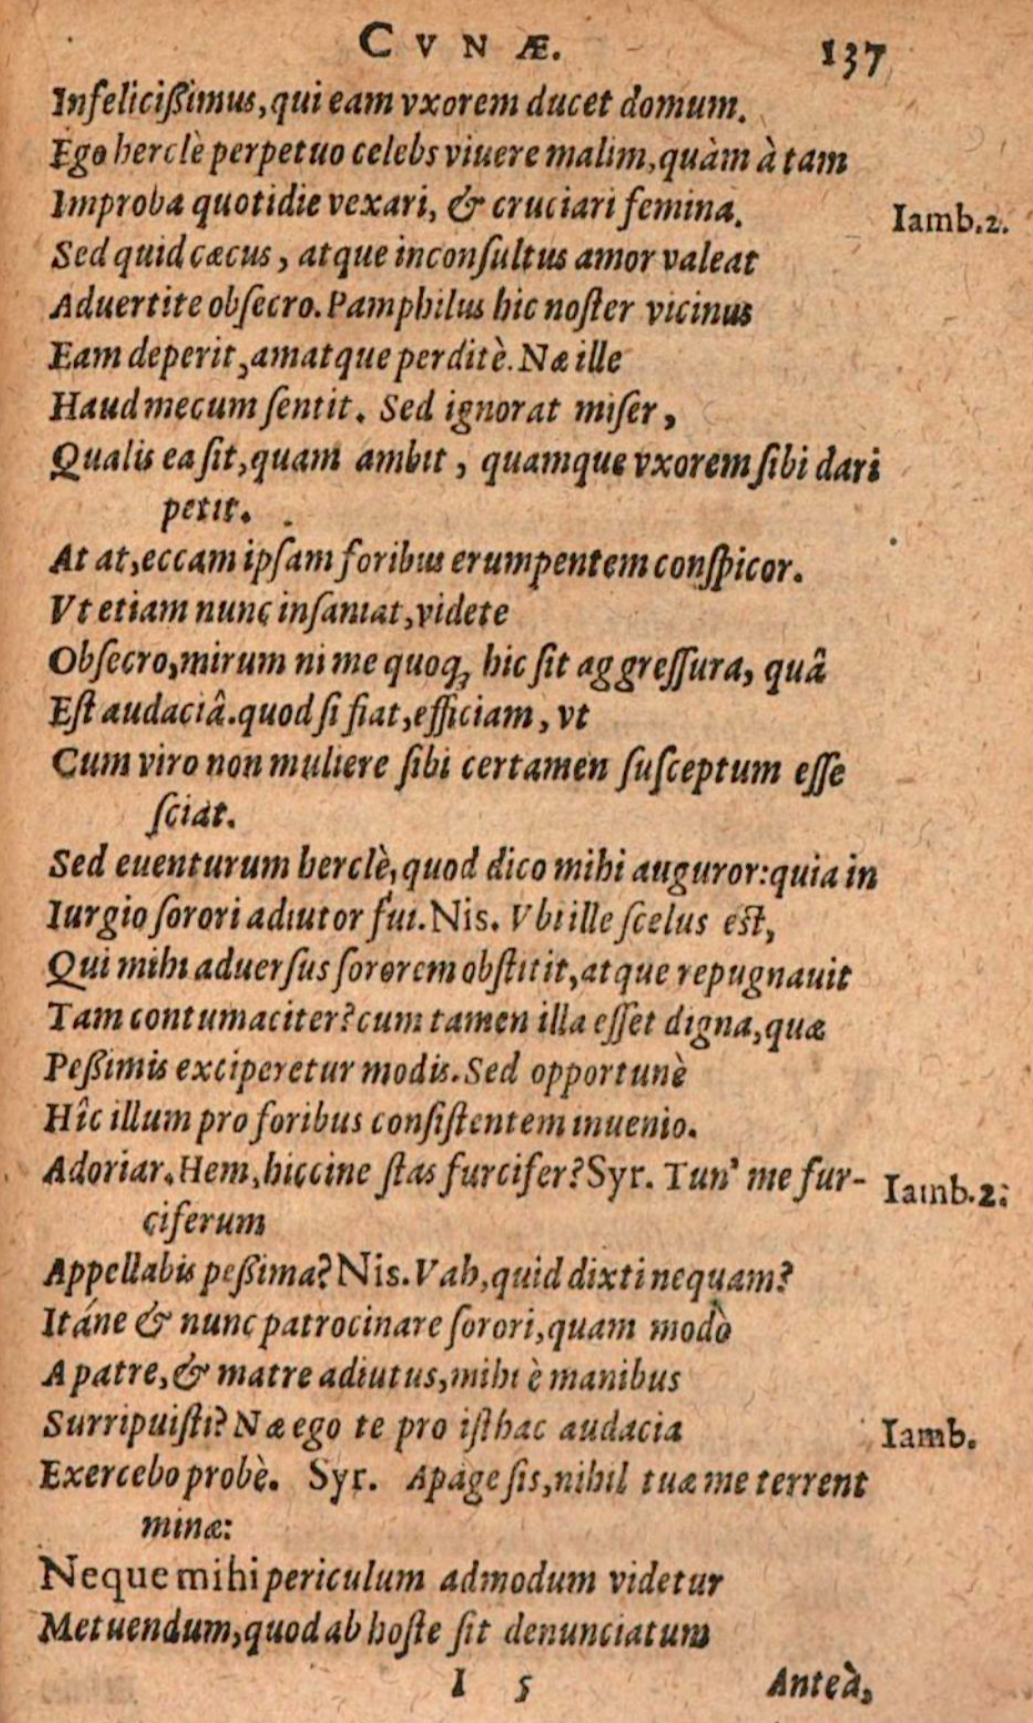 CVNÆ. 137
Infelicißimus, qui eam vxorem ducet domum.
Ego herclè perpetuo celebs viuere malim, quàm à tam
Improba quotidie vexari, & cruciari femina. Iamb. 2.
Sed quid cæcus, atque inconſultus amor valeat
Aduertite obſecro. Pamphilus hic noſter vicinus
Eam deperit, amatque perditè. Næ ille
Haud mecum ſentit. Sed ignorat miſer,
Qualis ea ſit, quam ambit, quamque vxorem ſibi dari
petit.
At at, eccam ipſam foribus erumpentem conſpicor.
Vt etiam nunc inſaniat, videte
Obſecro, mirum ni me quoq; hic ſit aggreſſura, quâ
Eſt audaciâ. quod ſi fiat, efficiam, vt
Cum viro non muliere ſibi certamen ſuſceptum eſſe
ſciat.
Sed euenturum herclè, quod dico mihi auguror: quia in
Iurgio ſorori adiutor fui. Nis. Vbi ille ſcelus eſt,
Qui mihi aduerſus ſororem obſtitit, atque repugnauit
Tam contumaciter? cum tamen illa eſſet digna, quæ
Peßimis exciperetur modis. Sed opportunè
Hîc illum pro foribus conſiſtentem inuenio.
Adoriar. Hem, hiccine ſtas furcifer? Syr. Tun' me fur- Iamb. 2.
ciferum
Appellabis peßima? Nis. Vah, quid dixti nequam?
Itáne & nunc patrocinare ſorori, quam modò
A patre, & matre adiutus, mihi è manibus
Surripuiſti? Næ ego te pro iſthac audacia Iamb.
Exercebo probè. Syr. Apage ſis, nihil tuæ me terrent
minæ:
Neque mihi periculum admodum videtur
Metuendum, quod ab hoſte ſit denunciatum
I 5 Anteà,